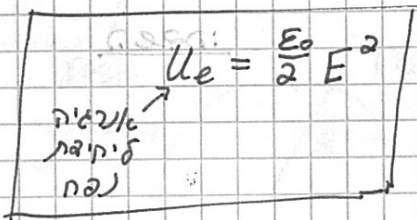 Uₑ = ε₀/2 E²
אנרגיה
ליחידת
נפח